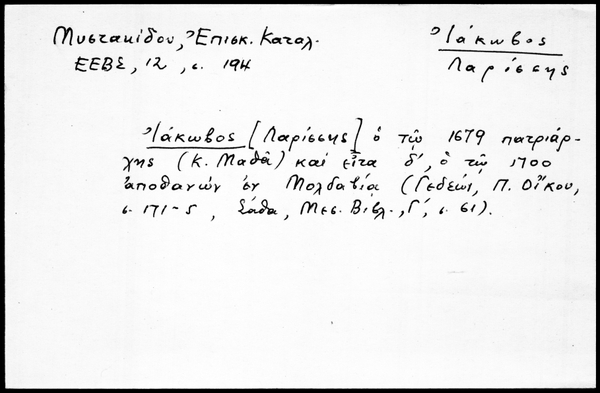 Μυστακίδου, Ἐπισκ. Καταλ.
ΕΕΒΣ, 12, σ. 194
Ἰάκωβος
Λαρίσσης
Ἰάκωβος [Λαρίσσης] ὁ τῷ 1679 πατριάρ-
χης (Κ. Μαθᾶ) καὶ εἶτα δ', ὁ τῷ 1700
ἀποθανὼν ἐν Μολδαβίᾳ (Γεδεών, Π. Οἴκου,
σ. 171-5, Σάθα, Μεσ. Βιβλ., Γ', σ. 61).